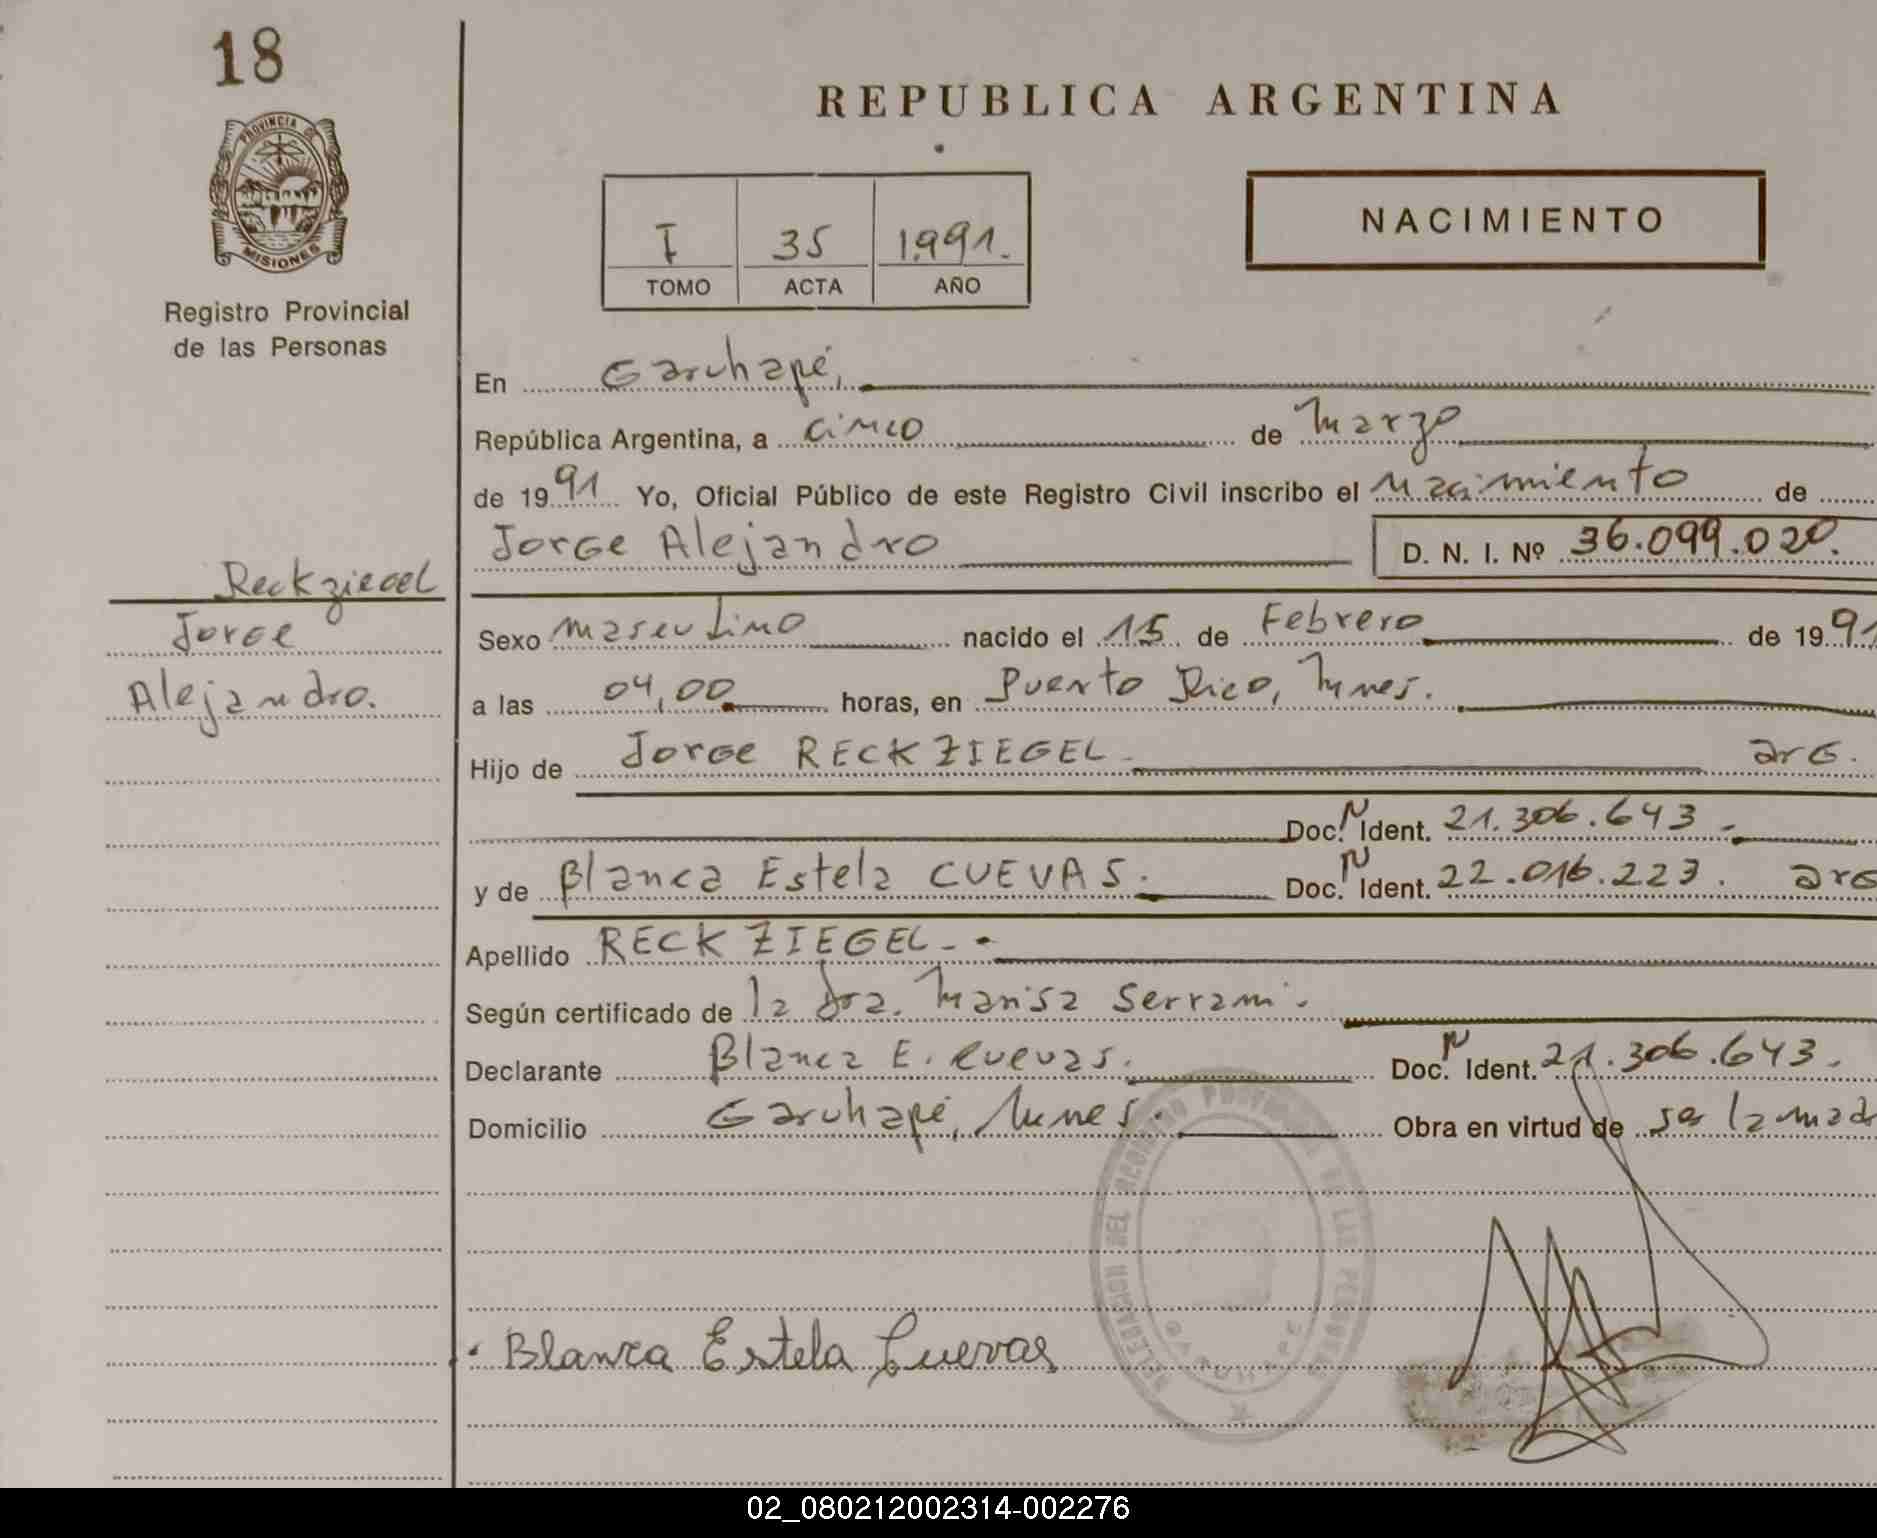 18
PROVINCIA DE
MISIONES
Registro Provincial
de las Personas
Reckziegel
Jorge
Alejandro.
REPUBLICA ARGENTINA
I 35 1.991.
TOMO ACTA AÑO
NACIMIENTO
En Garuhapé,
República Argentina, a cinco de Marzo
de 1991 Yo, Oficial Público de este Registro Civil inscribo el nacimiento de
Jorge Alejandro D. N. I. Nº 36.099.020.
Sexo masculino nacido el 15 de Febrero de 1991
a las 04,00 horas, en Puerto Rico, Mnes.
Hijo de Jorge RECKZIEGEL arg.
Doc. N Ident. 21.306.643
y de Blanca Estela CUEVAS. Doc. N Ident. 22.016.223. arg
Apellido RECKZIEGEL
Según certificado de la dra. Marisa
Declarante Blanca E. Cuevas. Doc. N Ident. 21.306.643.
Domicilio Garuhapé, Mnes. Obra en virtud de ser la mad
DELEGACION DEL REGISTRO PROVINCIAL DE LAS PERSONAS
GARUHAPE
Blanca Estela Cuevas
02_080212002314-002276